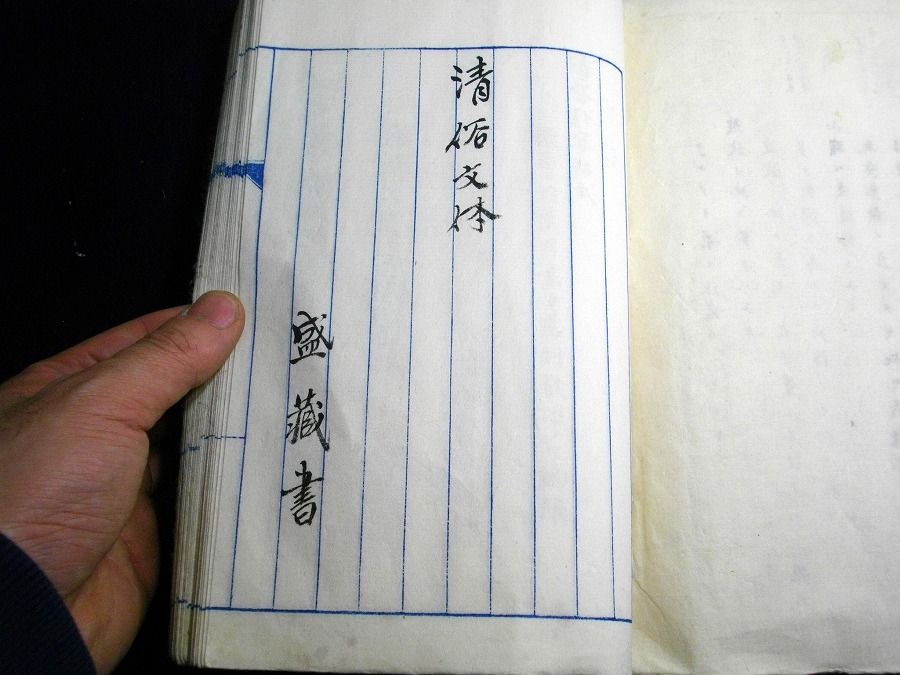 清俗文体
盛藏書